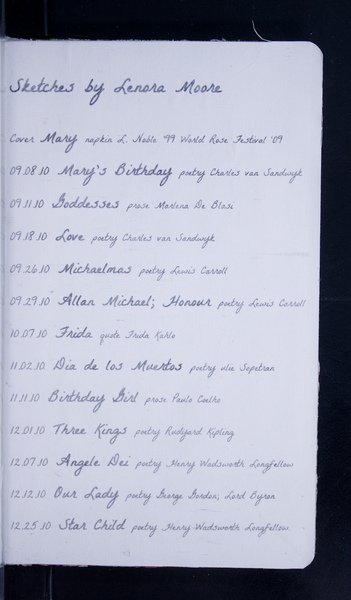 Sketches by Lenora Moore
Cover Mary napkin L. Noble 99 World Rose Festival '09
09.08.10 Mary's Birthday poetry Charles van Sandwyk
09.11.10 Goddesses prose Marlena De Blasi
09.18.10 Love poetry Charles van Sandwyk
09.26.10 Michaelmas poetry Lewis Carroll
09.29.10 Allan Michael; Honour poetry Lewis Carroll
10.07.10 Frida quote Frida Kahlo
11.02.10 Dia de los Muertos poetry Sopetran
11.11.10 Birthday Girl prose Paulo Coelho
12.01.10 Three Kings poetry Rudyard Kipling
12.07.10 Angele Dei poetry Henry Wadsworth Longfellow
12.12.10 Our Lady poetry George Gordon; Lord Byron
12.25.10 Star Child poetry Henry Wadsworth Longfellow